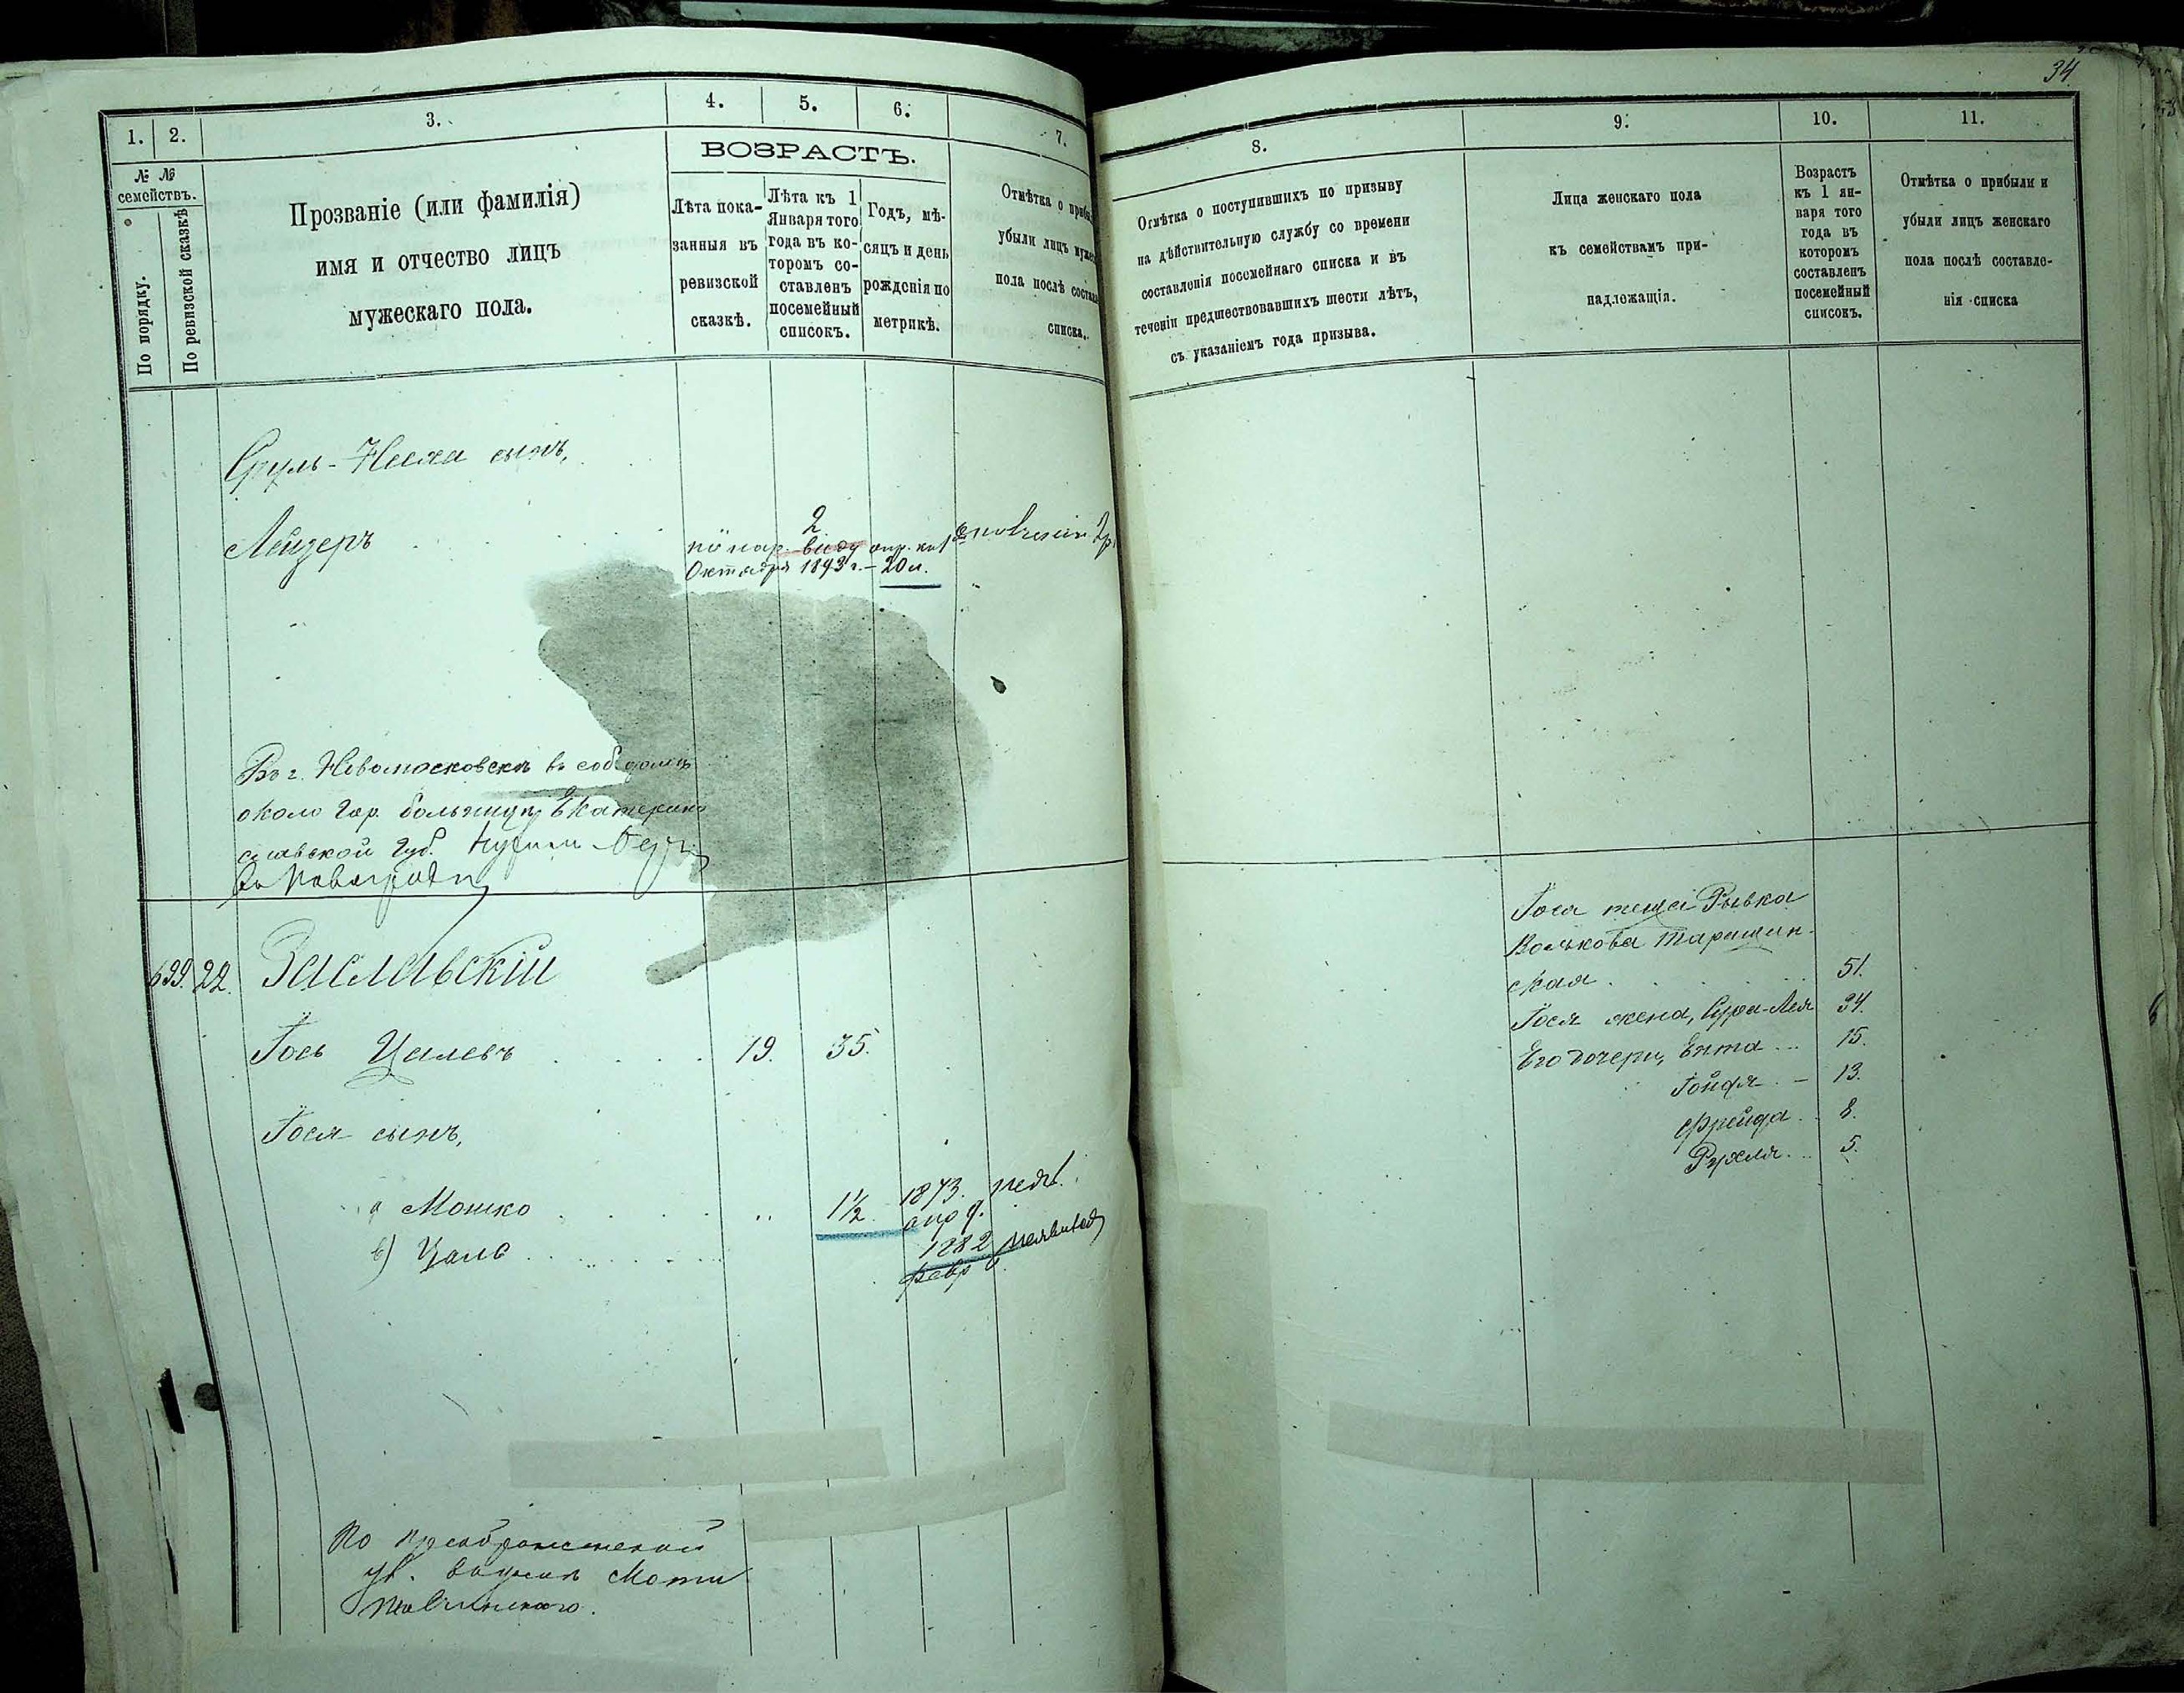 34
1. 2. 3. 4. 5. 6. 7.
№ №
семействъ.
По порядку.
По ревизской сказкѣ
Прозваніе (или фамилія)
имя и отчество лицъ
мужескаго пола.
ВОЗРАСТЪ.
Лѣта пока-
занныя въ
ревизской
сказкѣ.
Лѣта къ 1
Января того
года въ ко-
торомъ со-
ставленъ
посемейный
списокъ.
Годъ, мѣ-
сяцъ и день
рожденія по
метрикѣ.
Отмѣтка о приб
убыли лицъ муже
пола послѣ состав
списка.
Сруль-Несха сынъ,
Лейзеръ
2
по нар. виду опр. къ 1
Октября 1893 г. – 20 л.
Въ г. Новомосковскѣ въ соб домѣ
около Гор. больницы Екатерино
славской Губ.
699. 22. Заславскій
Іось Цалевъ 19. 35.
Іося сынъ,
а Мошко 1½ 1873.
апр 9.
б) Цаль 1882
февр
По Преображенской
ул.
8. 9. 10. 11.
Отмѣтка о поступившихъ по призыву
на дѣйствительную службу со времени
составленія посемейнаго списка и въ
теченіи предшествовавшихъ шести лѣтъ,
съ указаніемъ года призыва.
Лица женскаго пола
къ семействамъ при-
надлежащія.
Возрастъ
къ 1 ян-
варя того
года въ
которомъ
составленъ
посемейный
списокъ.
Отмѣтка о прибыли и
убыли лицъ женскаго
пола послѣ составле-
нія списка
Іося теща Рывка
Волькова Таращан-
ская 51.
Іося жена, Сура-Лея 34.
Его дочери, Ента 15.
Гойдя – 13.
Фрейда 8.
Рухля 5.